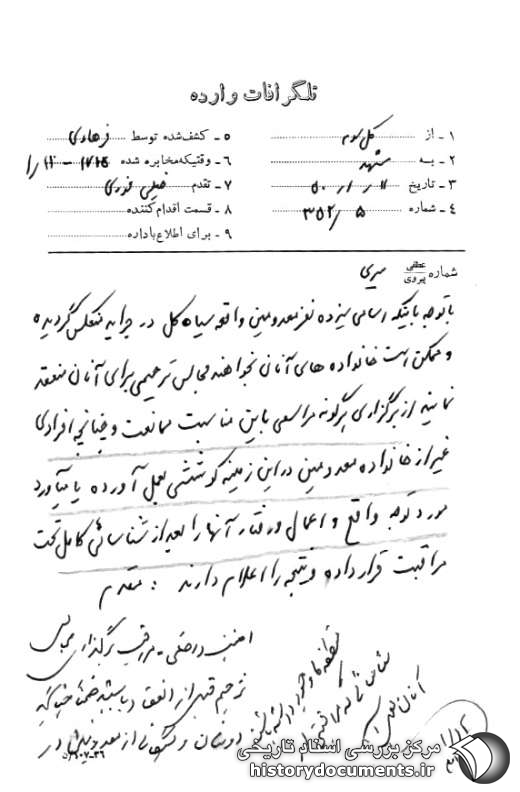 تلگرافات وارده
۱ - از کل سوم
۲ - به مشهد
۳ - تاریخ
۴ - شماره ۳۵۲/۵
۵ - کشف‌شده توسط فرهادی
۶ - وقتیکه مخابره شده
۷ - تقدم خیلی فوری
۸ - قسمت اقدام‌کننده
۹ - برای اطلاع باداره
شماره عطفی پیروی سری
با توجه باینکه اسامی سیزده نفر معدومین واقعه سیاه کل در جراید منعکس گردیده
و ممکن است خانواده های آنان بخواهند مجالس ترحیمی برای آنان منعقد
نمایند از برگزاری هرگونه مراسمی باین مناسبت ممانعت و چنانچه افرادی
غیر از خانواده معدومین در این زمینه کوششی بعمل آورده یا میآورد
مورد توجه واقع و اعمال و رفتار آنها را بعد از شناسائی کامل تحت
مراقبت قرار داده و نتیجه را اعلام دارند : مقدم
امنیت داخلی - مراقب برگذاری مجالس
ترحیم قبل از انعقاد باشید ضمنا چنانچه
دوستان و از معدومین در
مرکز بررسی اسناد تاریخی
historydocuments.ir